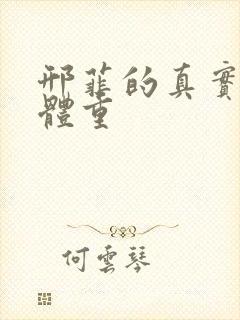 邢菲的真實
體重
何雲琴